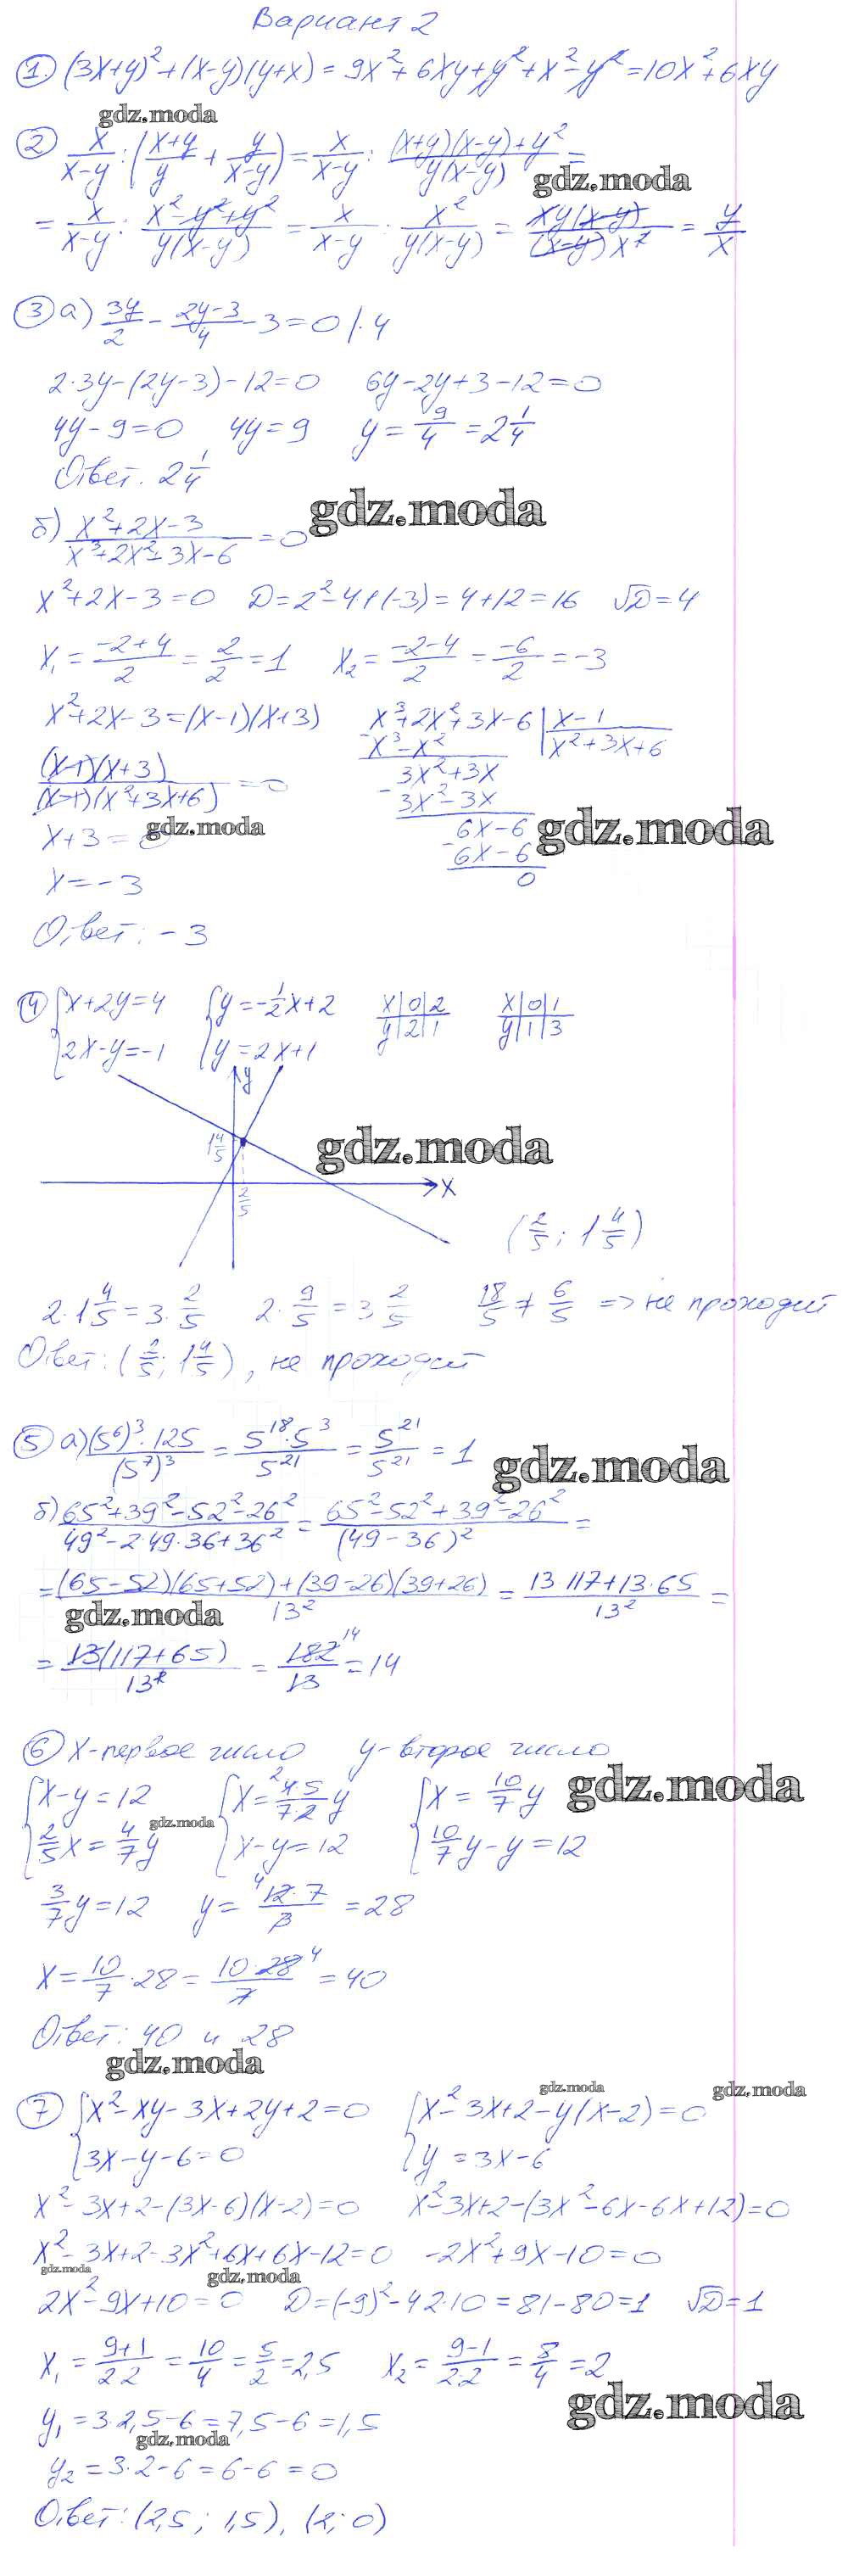 Вариант 2
1. (3x+y)²+(x-y)(y+x)=9x²+6xy+y²+x²-y²=10x²+6xy
gdz.moda
2 x/(x-y) : ((x+y)/y + y/(x-y)) = x/(x-y) : ((x+y)(x-y)+y²)/(y(x-y)) =
gdz.moda
= x/(x-y) : (x²-y²+y²)/(y(x-y)) = x/(x-y) : x²/(y(x-y)) = xy(x-y)/((x-y)x²) = y/x
3 а) 3y/2 - (2y-3)/4 - 3=0 |·4
2·3y-(2y-3)-12=0 6y-2y+3-12=0
4y-9=0 4y=9 y=9/4=2 1/4
Ответ. 2 1/4
б) (x²+2x-3)/(x³+2x²+3x-6)=0
gdz.moda
x²+2x-3=0 D=2²-4·1·(-3)=4+12=16 √D=4
x₁=(-2+4)/2=2/2=1 x₂=(-2-4)/2=-6/2=-3
x²+2x-3=(x-1)(x+3) x³+2x²+3x-6 | x-1
x³-x² x²+3x+6
(x-1)(x+3)/((x-1)(x²+3x+6))=0 3x²+3x
3x²-3x
gdz.moda
x+3=0 6x-6
gdz.moda
6x-6
x=-3 0
Ответ: -3
4 {x+2y=4 {y=-1/2x+2 x|0|2 x|0|1
2x-y=-1 y=2x+1 y|2|1 y|1|3
y
1 4/5
gdz.moda
x
2/5
(2/5; 1 4/5)
2·1 4/5=3·2/5 2·9/5=3·2/5 18/5≠6/5 => не проходит
Ответ: (2/5; 1 4/5), не проходит
5 а) (5⁶)³·125/(5⁷)³=5¹⁸·5³/5²¹=5²¹/5²¹=1
gdz.moda
б) (65²+39²-52²-26²)/(49²-2·49·36+36²)=(65²-52²+39²-26²)/(49-36)²=
=((65-52)(65+52)+(39-26)(39+26))/13²=(13·117+13·65)/13²=
gdz.moda
=13(117+65)/13²=182/13=14
6 x-первое число y-второе число
gdz.moda
{x-y=12 {x=4·5/(7·2)y {x=10/7y
gdz.moda
2/5x=4/7y x-y=12 10/7y-y=12
3/7y=12 y=12·7/3=28
x=10/7·28=10·28/7=40
Ответ: 40 и 28
gdz.moda
gdz.moda
gdz.moda
7 {x²-xy-3x+2y+2=0 {x²-3x+2-y(x-2)=0
3x-y-6=0 y=3x-6
x²-3x+2-(3x-6)(x-2)=0 x²-3x+2-(3x²-6x-6x+12)=0
x²-3x+2-3x²+6x+6x-12=0 -2x²+9x-10=0
gdz.moda
gdz.moda
2x²-9x+10=0 D=(-9)²-4·2·10=81-80=1 √D=1
x₁=(9+1)/(2·2)=10/4=5/2=2,5 x₂=(9-1)/(2·2)=8/4=2
gdz.moda
y₁=3·2,5-6=7,5-6=1,5
gdz.moda
y₂=3·2-6=6-6=0
Ответ: (2,5; 1,5), (2; 0)